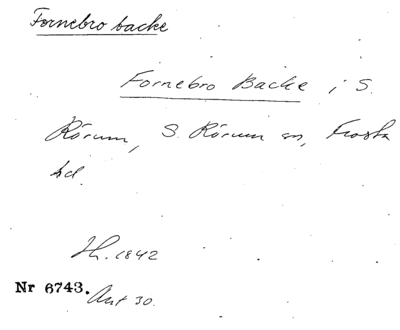 Fornebro backe
Fornebro Backe i S.
Rörum, S. Rörum sn, Frosta
hd.
Hh. 1842
Nr 6743. Ant 30.